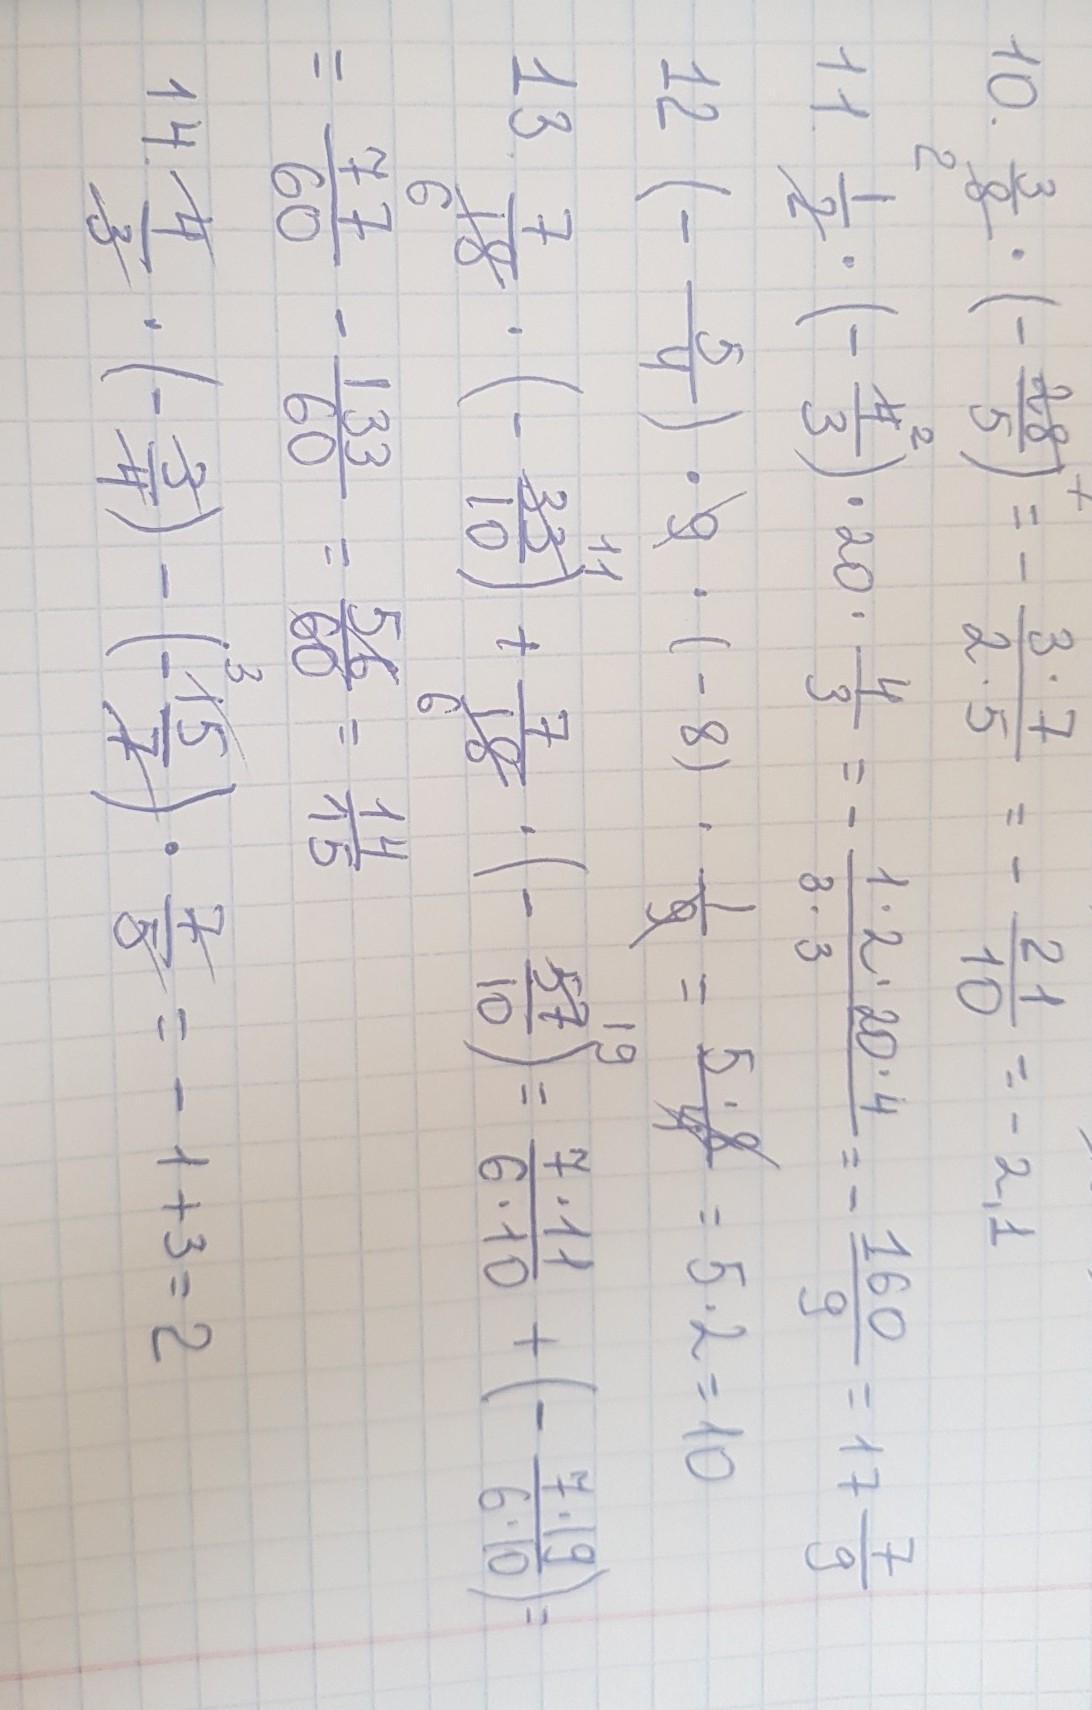 10. 3/8 · (- 28/5) = - 3·7/2·5 = - 21/10 = - 2,1
2 7
11. 1/2 · (- 4/3) · 20 · 4/3 = - 1·2·20·4/3·3 = - 160/9 = 17 7/9
2
12 (- 5/4) · 9 · (-8) · 1/9 = 5·8/4 = 5·2 = 10
13. 7/18 · (- 33/10) + 7/18 · (- 57/10) = 7·11/6·10 + (- 7·19/6·10) =
6 11 6 19
= 77/60 - 133/60 = 56/60 = 14/15
14. 4/3 · (- 3/4) - (- 15/7) · 7/5 = - 1 + 3 = 2
3